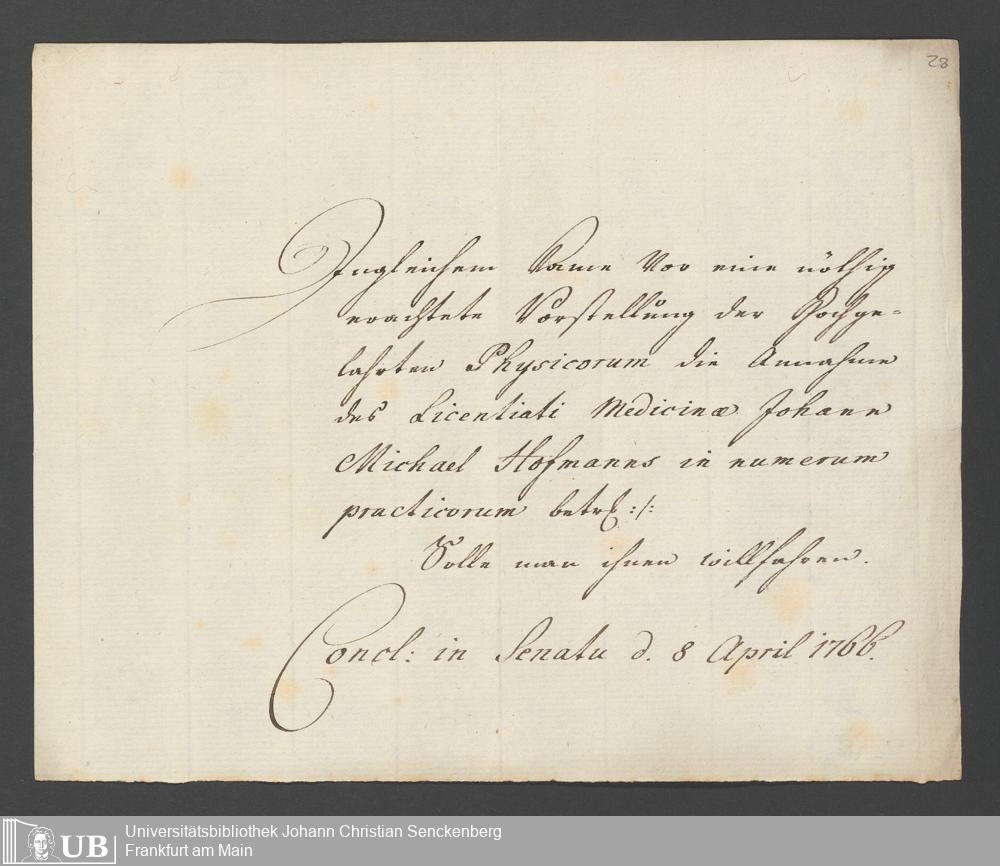 28
Ingleichem Kame vor eine nöthig
erachtete Vorstellung der Hochge-
lahrten Physicorum die Annahme
des Licentiati Medicinæ Johann
Michael Hofmanns in numerum
practicorum betr: :/:
Solle man ihnen willfahren.
Concl: in Senatu d. 8 April 1766.
UB
Universitätsbibliothek Johann Christian Senckenberg
Frankfurt am Main